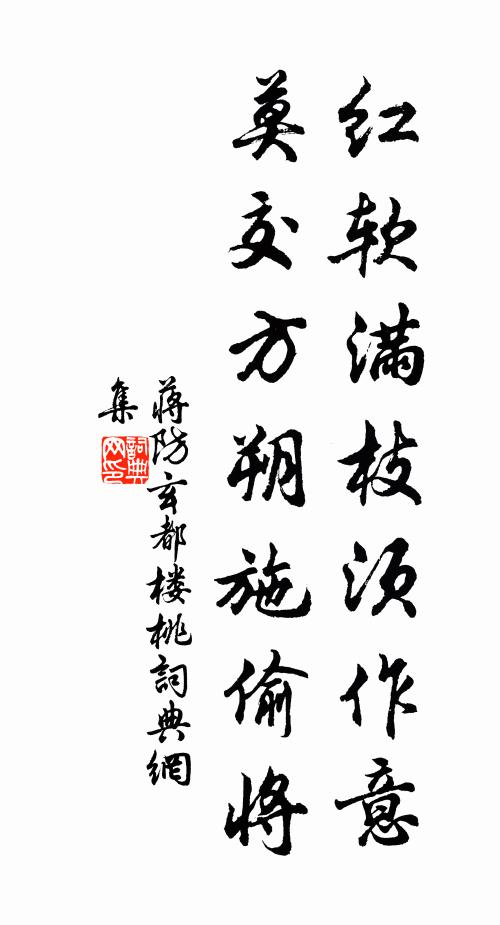 红软满枝须作意
莫交方朔施偷将
蒋防玄都楼桃詞典網
集
詞典
网印